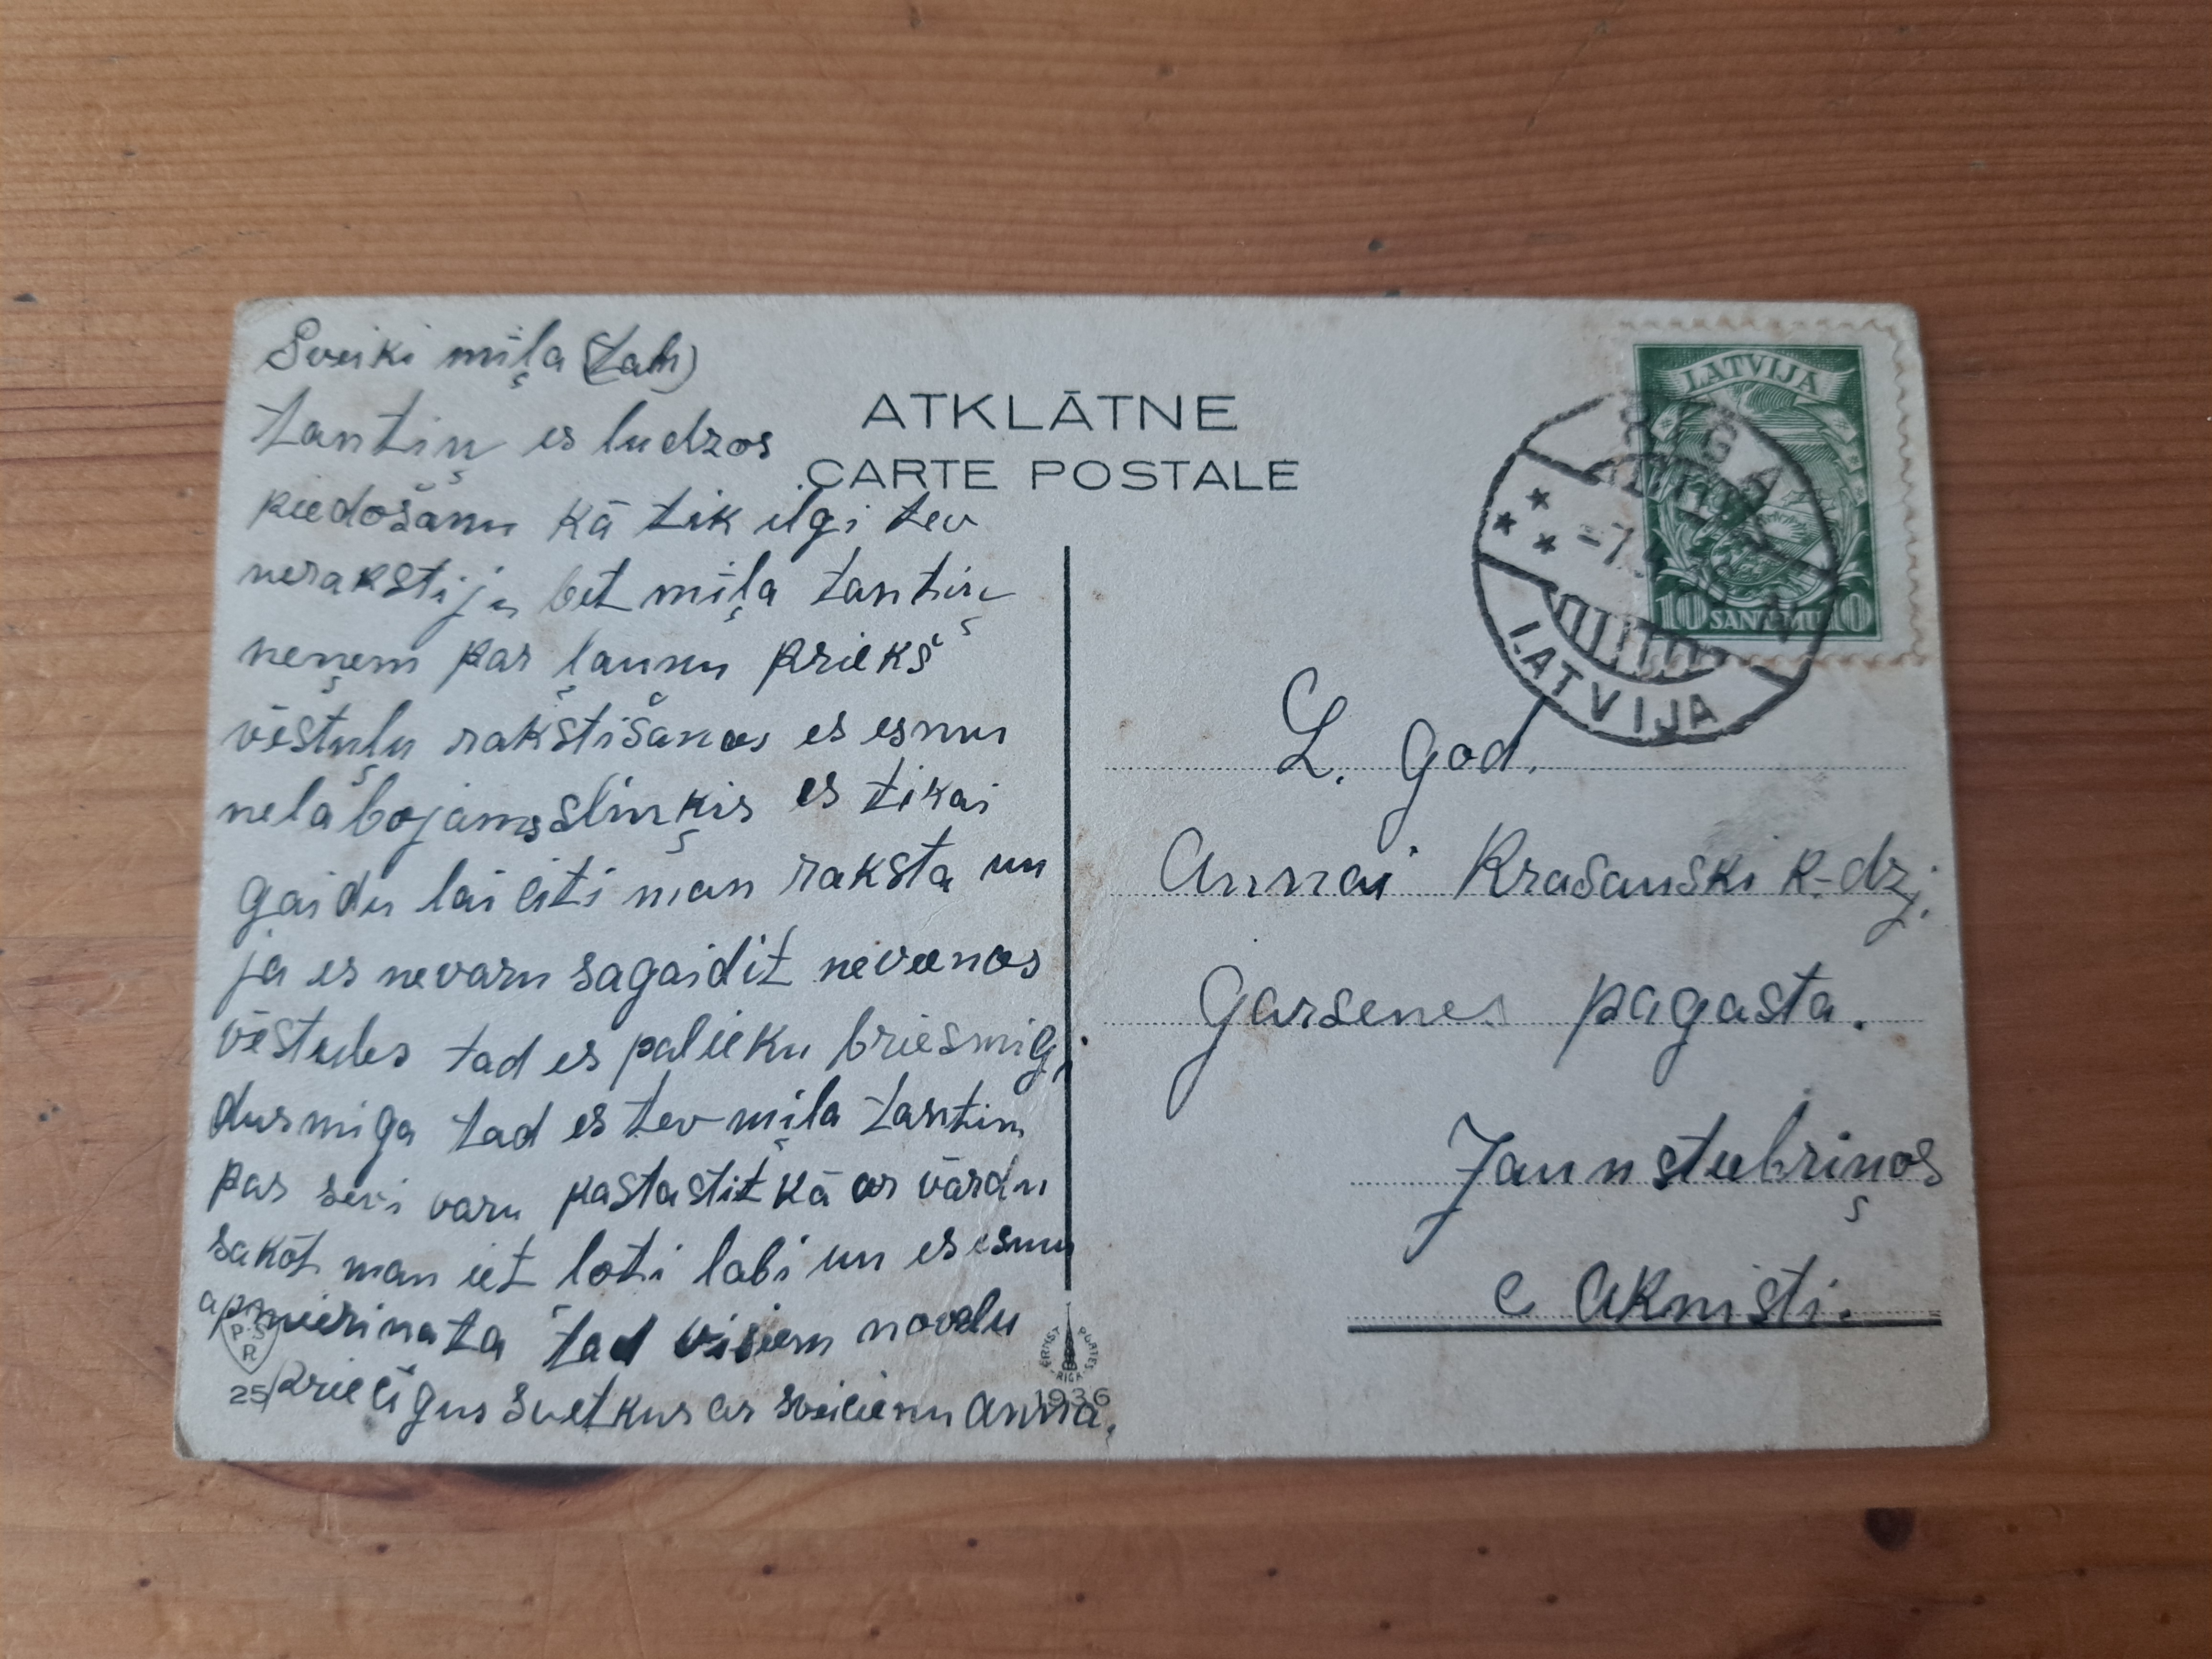 Sveiki mīļa (tan)
tantiņ es ludzos
piedošanu kā tik ilgi tev
nerakstiju bet mīļa tantiņ
neņem par ļaunu priekš
vēstuļu rakstišanas es esmu
nelabojams sliņķis es tikai
gaidu lai citi man raksta un
ja es nevaru sagaidit nevienas
vēstules tad es palieku briesmig,
dusmiga tad es tev mīļa tantiņ
par sevi varu pastastit kā ar vārdu
sakot man iet loti labi un es esmu
apmierinata tad visiem novelu
Priecigus svetkus ar sveicienu Anna.
ATKLĀTNE
CARTE POSTALE
LATVIJA
10 SANTĪMU 10
RĪGA
LATVIJA
L. god.
Annai Krasauski k-dzj.
Garsenes pagasta.
Jaunstubriņos
c Aknisti.
P.S.
R
25
ERNST PLATES
RIGA
1936